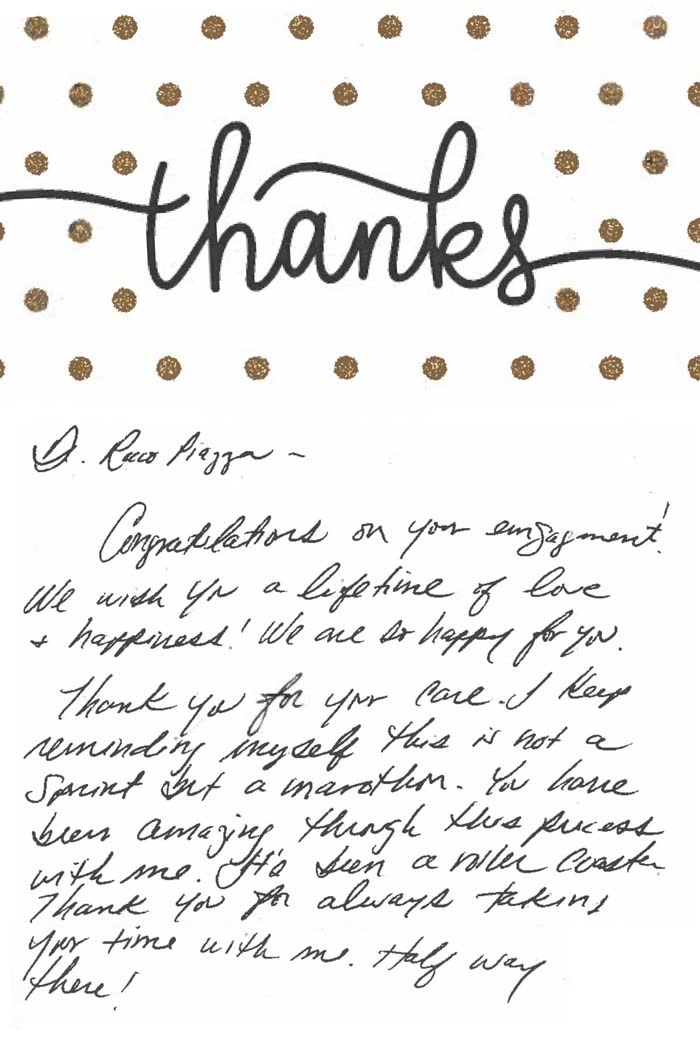 thanks
Dr. Rocco Piazza -
Congratulations on your engagement!
We wish you a lifetime of love
+ happiness! We are so happy for you.
Thank you for your care. I keep
reminding myself this is not a
sprint but a marathon. You have
been amazing through this process
with me. It's been a roller coaster
Thank you for always taking
your time with me. Half way
there!